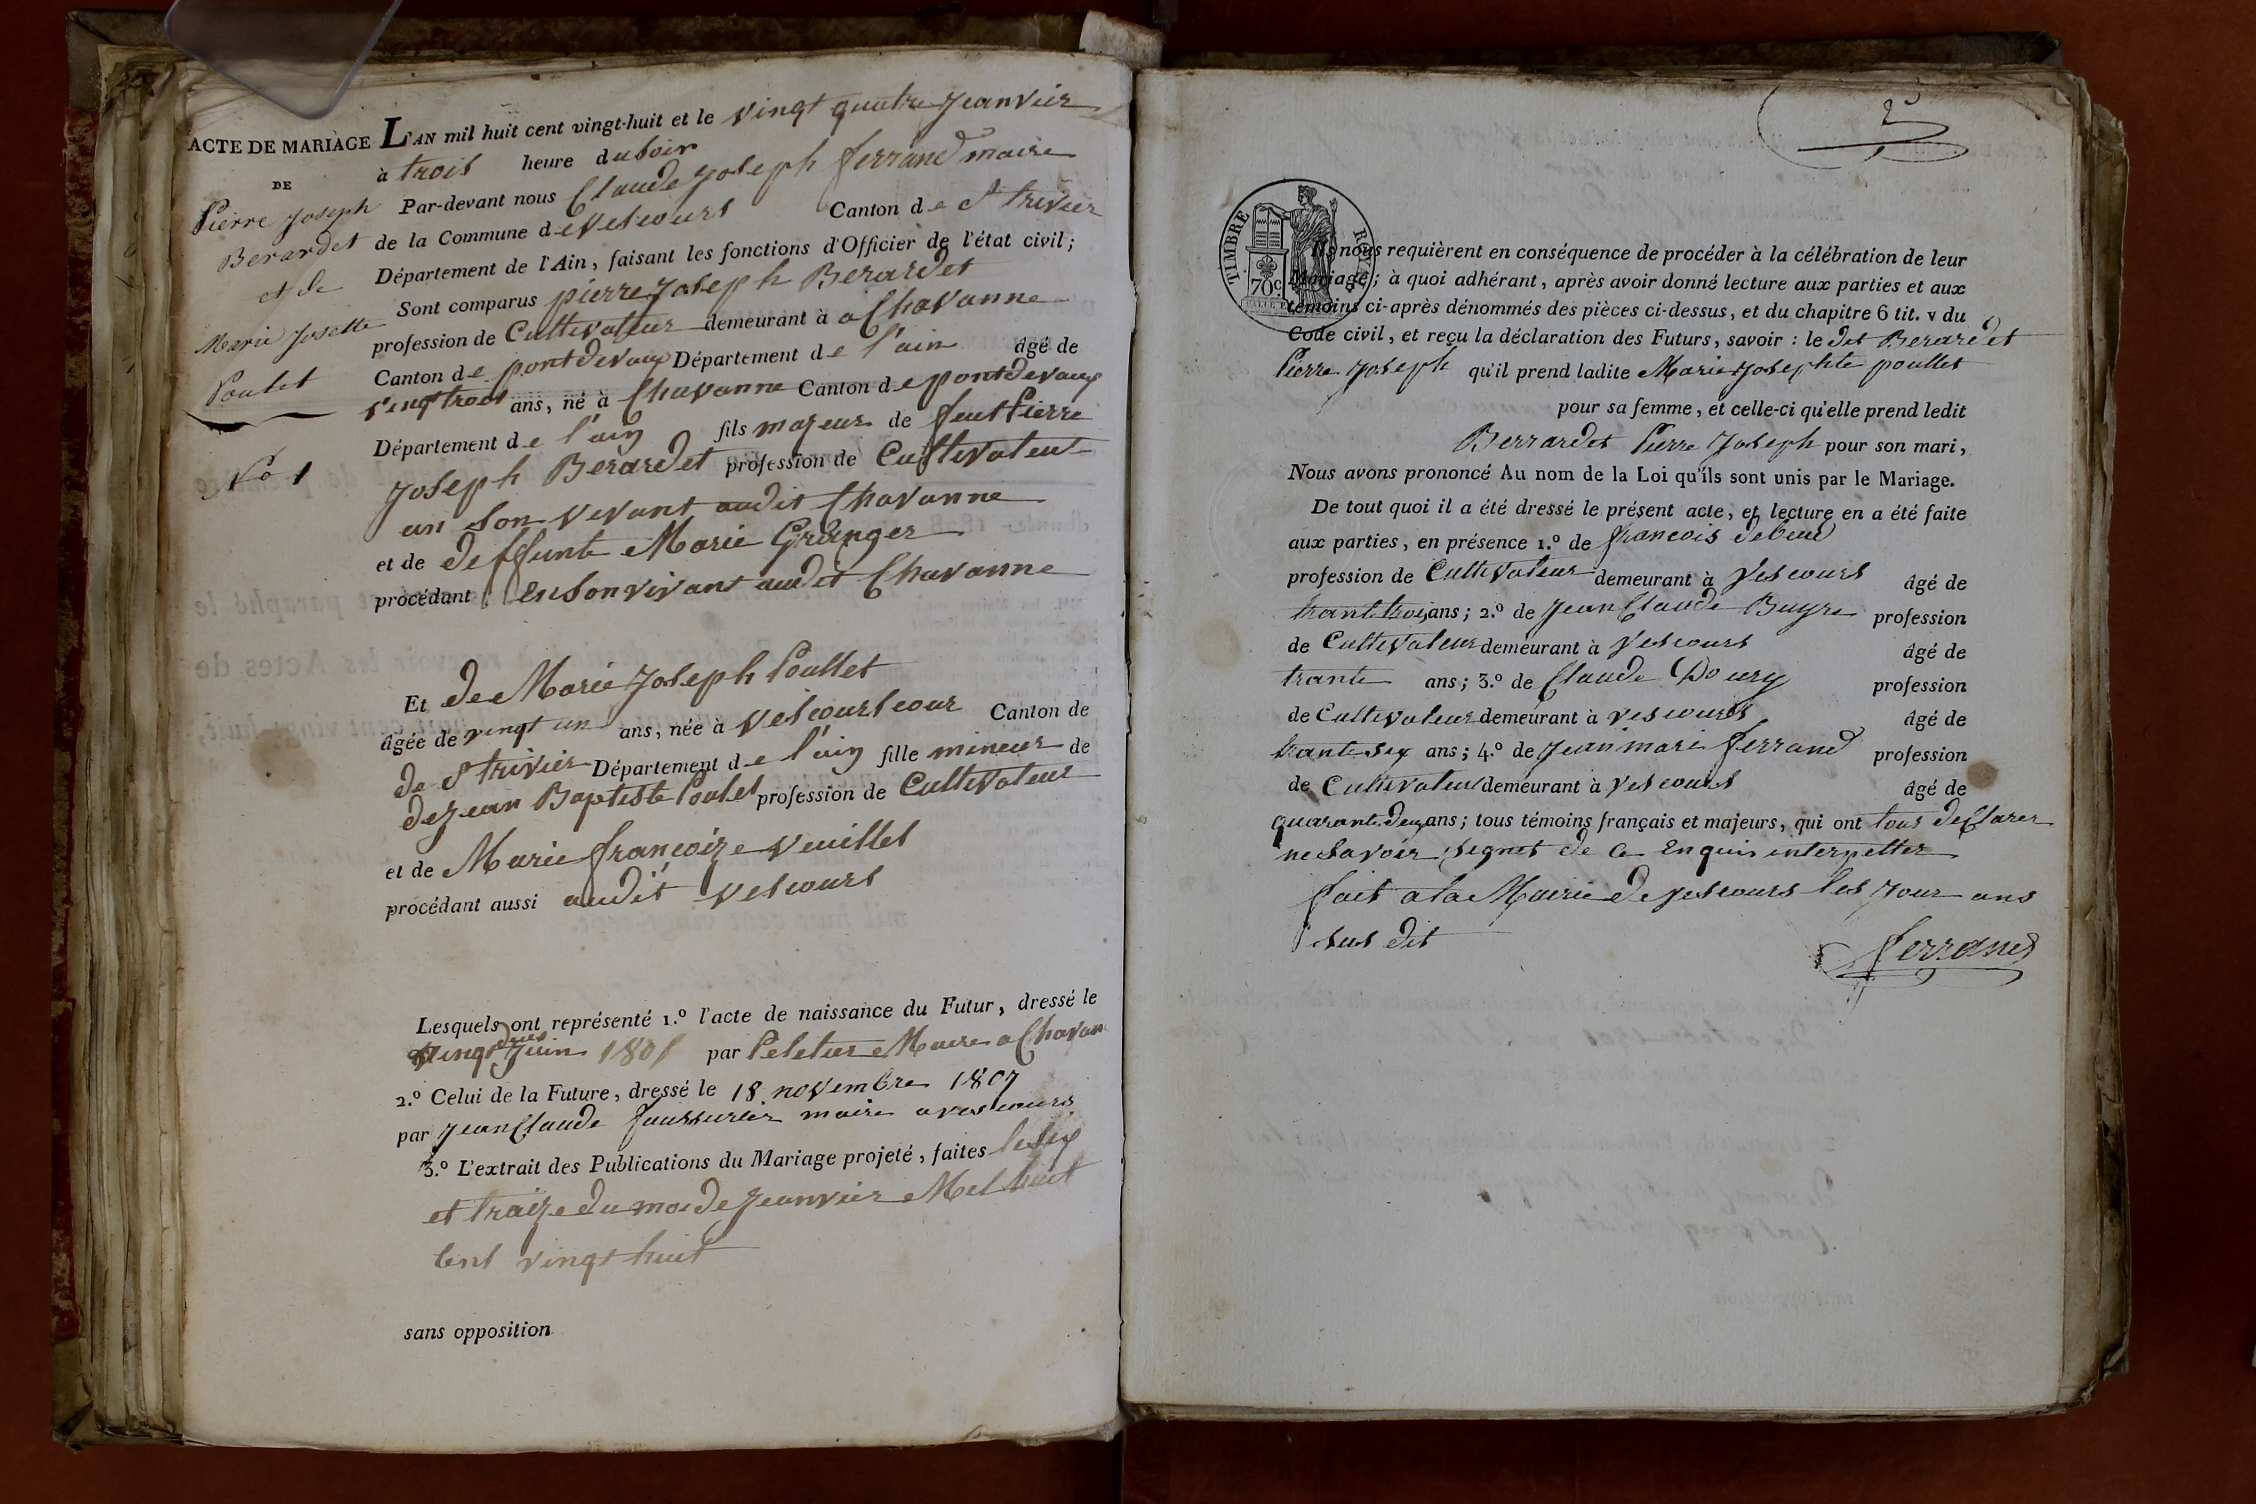 ACTE DE MARIAGE
DE
Pierre Joseph
Berardet
et de
Marie Josette
Poulet
No 1
L'AN mil huit cent vingt-huit et le vingt quatre Jeanvier
à trois heure du soir
Par-devant nous Claude Joseph ferrand maire
de la Commune de Vescours Canton de St trivier
Département de l'Ain, faisant les fonctions d'Officier de l'état civil;
Sont comparus pierre Joseph Berardet
profession de Cultivateur demeurant à a Chavanne
Canton de pontdevaux Département de l'ain âgé de
vingt trois ans, né à Chavanne Canton de pontdevaux
Département de l'ain fils majeur de feut Pierre
Joseph Berardet profession de Cultivateur
an son vivant audit Chavanne
et de deffunte Marie Granger
procédant en son vivant audit Chavanne
Et de Marie Joseph Poullet
âgée de vingt un ans, née à Vescourscour Canton de
de St trivier Département de l'ain fille mineur de
de Jean Baptiste Poulet profession de Cultivateur
et de Marie francoize Veuillet
procédant aussi audit Vescours
Lesquels ont représenté 1.º l'acte de naissance du Futur, dressé le
vingt deux Juin 1801 par Peletier Maire a Chavan
2.º Celui de la Future, dressé le 18 novembre 1807
par Jean Claude maire a vescours
3.º L'extrait des Publications du Mariage projeté, faites le six
et traize du moi de Jeanvier Mel huit
Cent vingt huit
sans opposition
2
TIMBRE ROYAL
70c
Ils nous requièrent en conséquence de procéder à la célébration de leur
Mariage; à quoi adhérant, après avoir donné lecture aux parties et aux
témoins ci-après dénommés des pièces ci-dessus, et du chapitre 6 tit. v du
Code civil, et reçu la déclaration des Futurs, savoir : le dit Berardet
Pierre Joseph qu'il prend ladite Marie Josephte poullet
pour sa femme, et celle-ci qu'elle prend ledit
Berrardet Pierre Joseph pour son mari,
Nous avons prononcé Au nom de la Loi qu'ils sont unis par le Mariage.
De tout quoi il a été dressé le présent acte, et lecture en a été faite
aux parties, en présence 1.º de francois
profession de Cultivateur demeurant à Vescours âgé de
trante trois ans; 2.º de Jean Claude Buyre profession
de Cultivateur demeurant à Vescours âgé de
trante ans; 3.º de Claude Doury profession
de Cultivateur demeurant à vescours âgé de
trante six ans; 4.º de Jean mari ferrand profession
de Cultivateur demeurant à Vescours âgé de
quarante deux ans; tous témoins français et majeurs, qui ont tous declarer
ne savoir segner de ce Enquis interpetter
fait a la Mairie de vescours les Jour ans
sus dit
ferrand